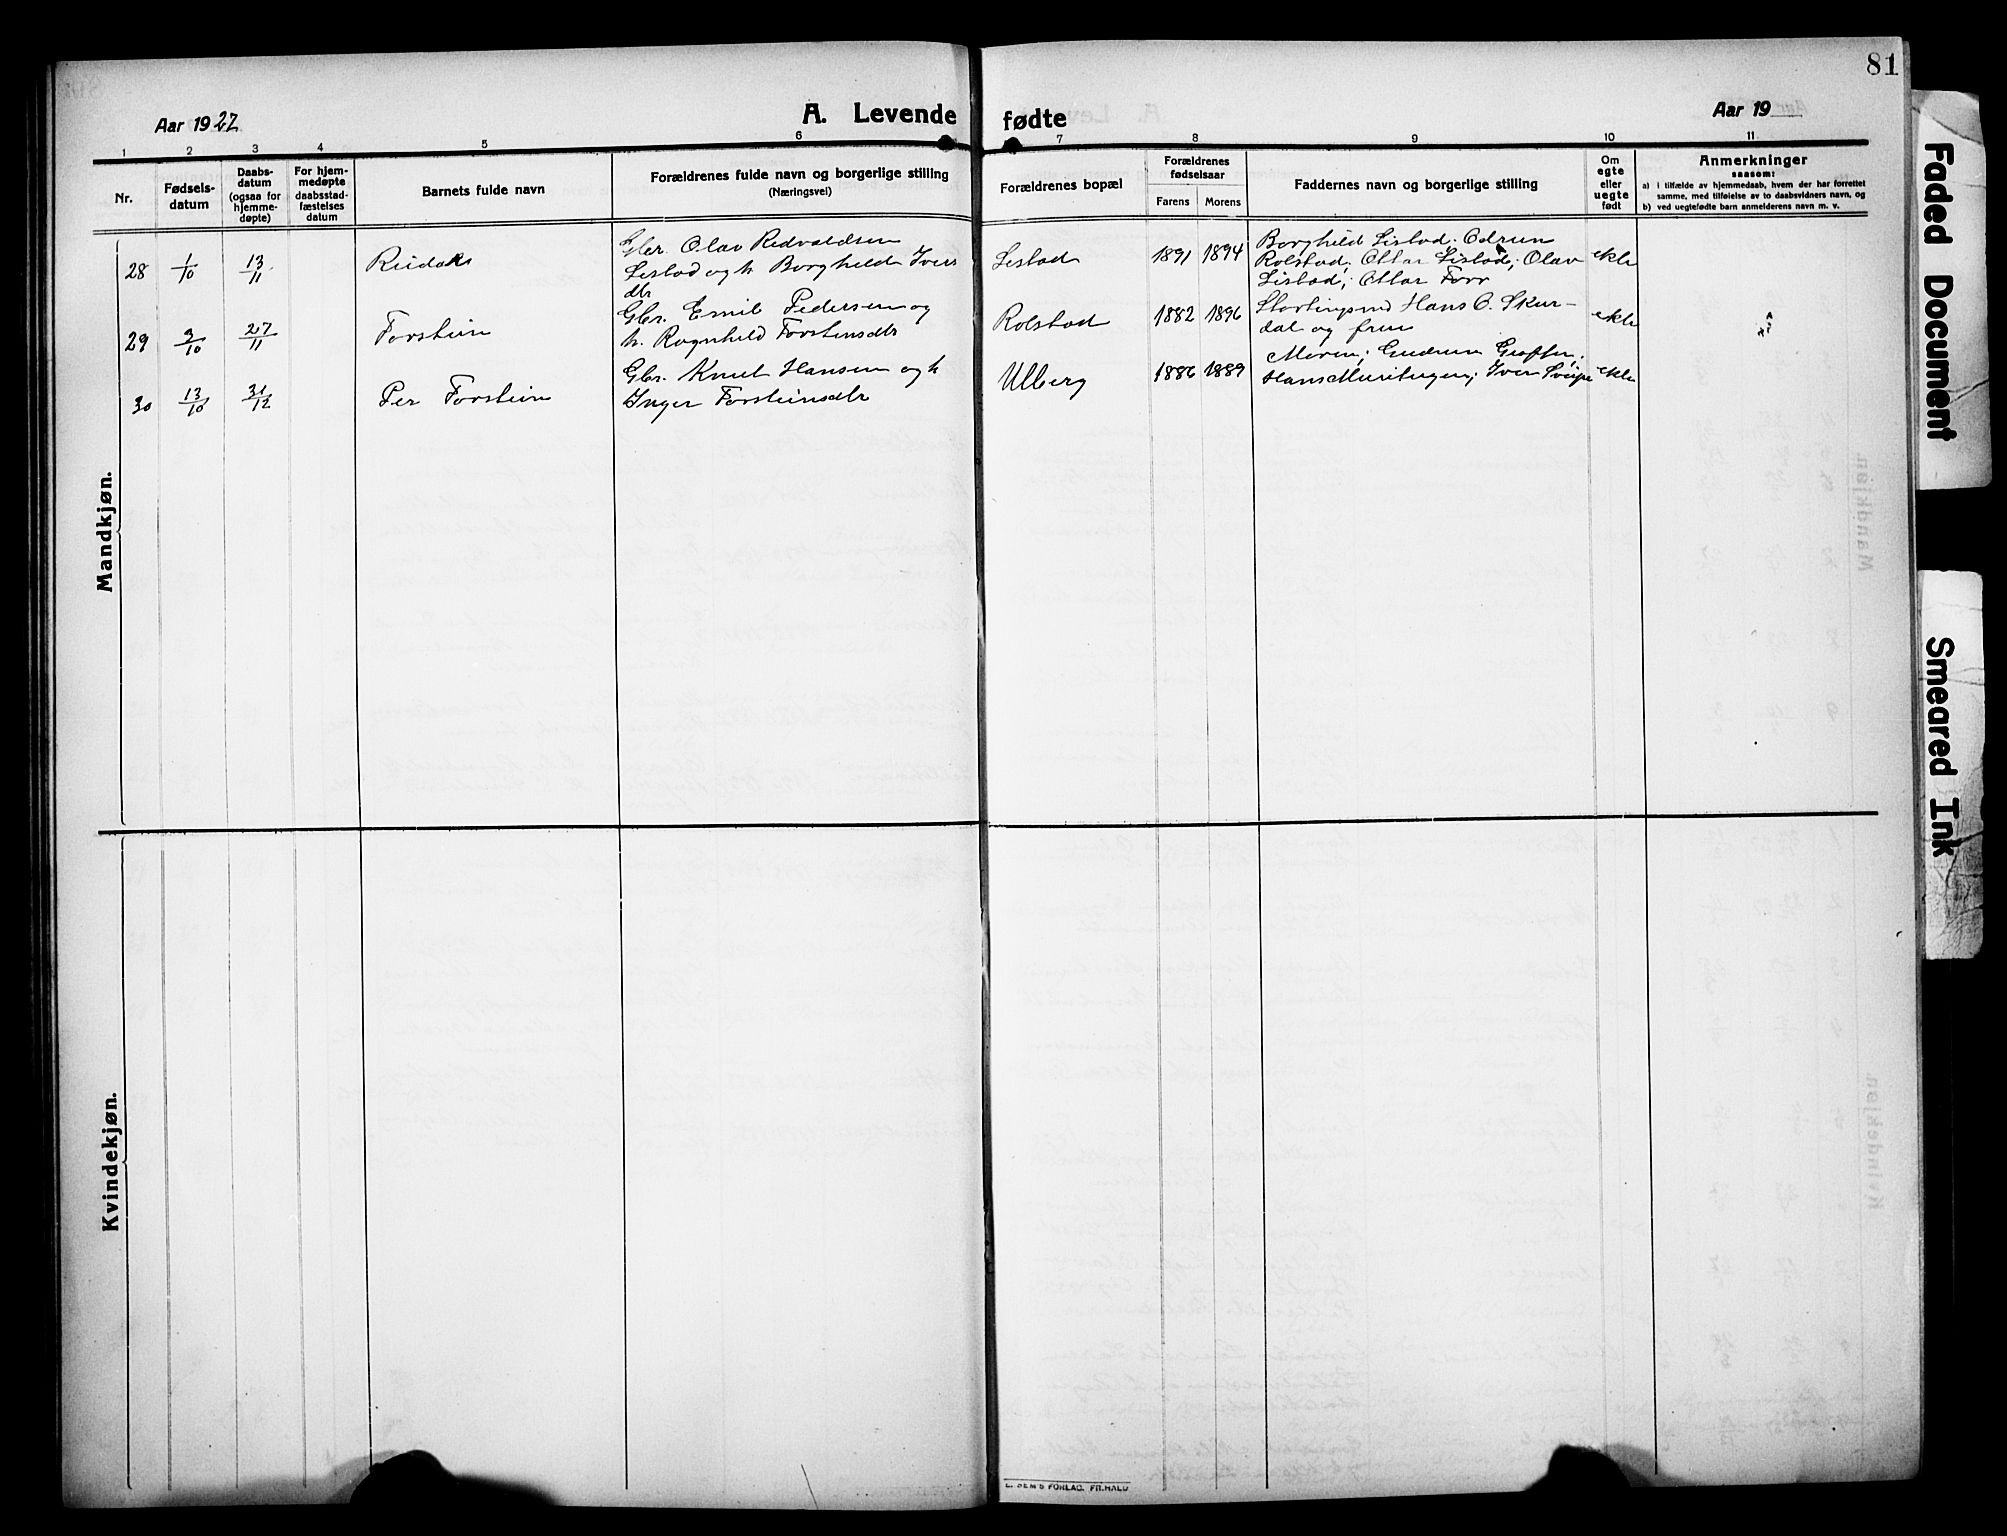 81
Aar 1927
A. Levende
fødte
Aar 19
1 2 3 4 5 6 7 8 9 10 11
Nr.
Fødsels-
datum
Daabs-
datum
(ogsaa for
hjemme-
døpte)
For hjem-
medøpte
daabsstad-
fæstelses
datum
Barnets fulde navn
Forældrenes fulde navn og borgerlige stilling
(Næringsvei)
Forældrenes bopæl
Forældrenes
fødselsaar
Farens Morens
Faddernes navn og borgerlige stilling
Om
egte
eller
uegte
født
Anmerkninger
saasom:
a) i tilfælde av hjemmedaab, hvem der har forrettet
samme, med tilføielse av to daabsvidners navn, og
b) ved uegtefødte barn anmelderens navn m. v.
Mandkjøn.
28 1/10 13/11 Reidar
Gbr. Olav Redvaldsen
Listad og h. Borghild Ivers
dtr
Listad 1891 1894
Borghild Listad; Odrun
Rolstad; Ottar Listad; Olav
Listad; Ottar Forr
ekte
29 2/10 27/11 Torstein
Gbr. Emil Pedersen og
h. Ragnhild Torstensdtr
Rolstad 1882 1896
Stortingsmd Hans O. Skur-
dal og frue
ekte
30 13/10 31/12 Per Torstein
Gbr. Knut Hansen og h
Inger Torsteinsdtr
Ulberg 1886 1889
Moren; Gudrun
Hans Muritugen; Iver
ekte
Kvindekjøn.
E. SEM'S FORLAG. FR.HALD
Faded Document
Smeared Ink